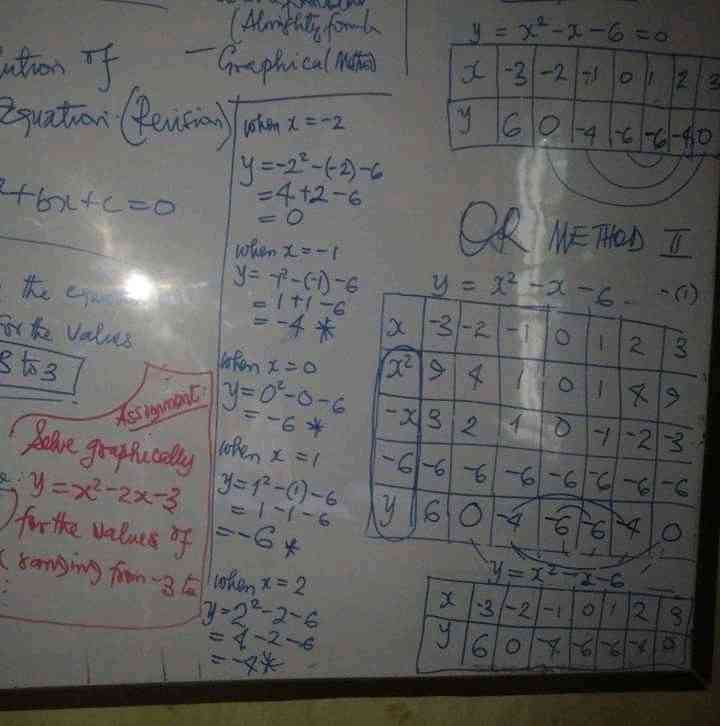 (Almighty formula
- Graphical (Method)
of
Equation (Revision)
+bx+c=0
the
For the values
3 to 3
Assignment:
Solve graphically
y = x²-2x-3
for the values of
ranging from -3 to
when x = -2
y = -2²-(-2)-6
= 4+2-6
= 0
when x = -1
y = -1²-(-1)-6
= 1+1-6
= -4 *
when x = 0
y = 0²-0-6
= -6 *
when x = 1
y = 1²-(1)-6
= 1-1-6
= -6 *
when x = 2
y = 2²-2-6
= 4-2-6
= -4 *
y = x²-x-6=0
x -3 -2 -1 0 1 2 3
y 6 0 -4 -6 -6 -4 0
OR METHOD II
y = x²-x-6 -(1)
x -3 -2 -1 0 1 2 3
x² 9 4 1 0 1 4 9
-x 3 2 1 0 -1 -2 -3
-6 -6 -6 -6 -6 -6 -6 -6
y 6 0 -4 -6 -6 -4 0
y = x²-x-6
x -3 -2 -1 0 1 2 3
y 6 0 -4 -6 -6 -4 0